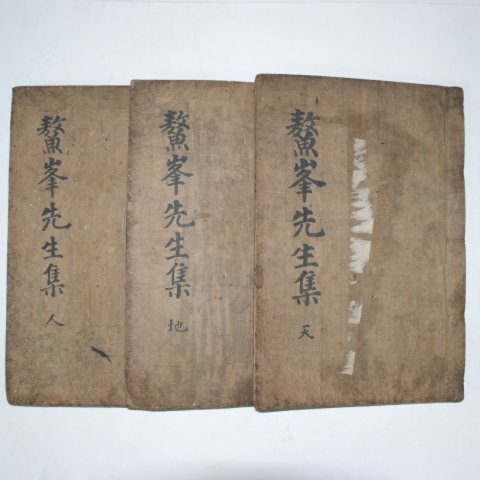 鰲峯先生集 天
鰲峯先生集 地
鰲峯先生集 人